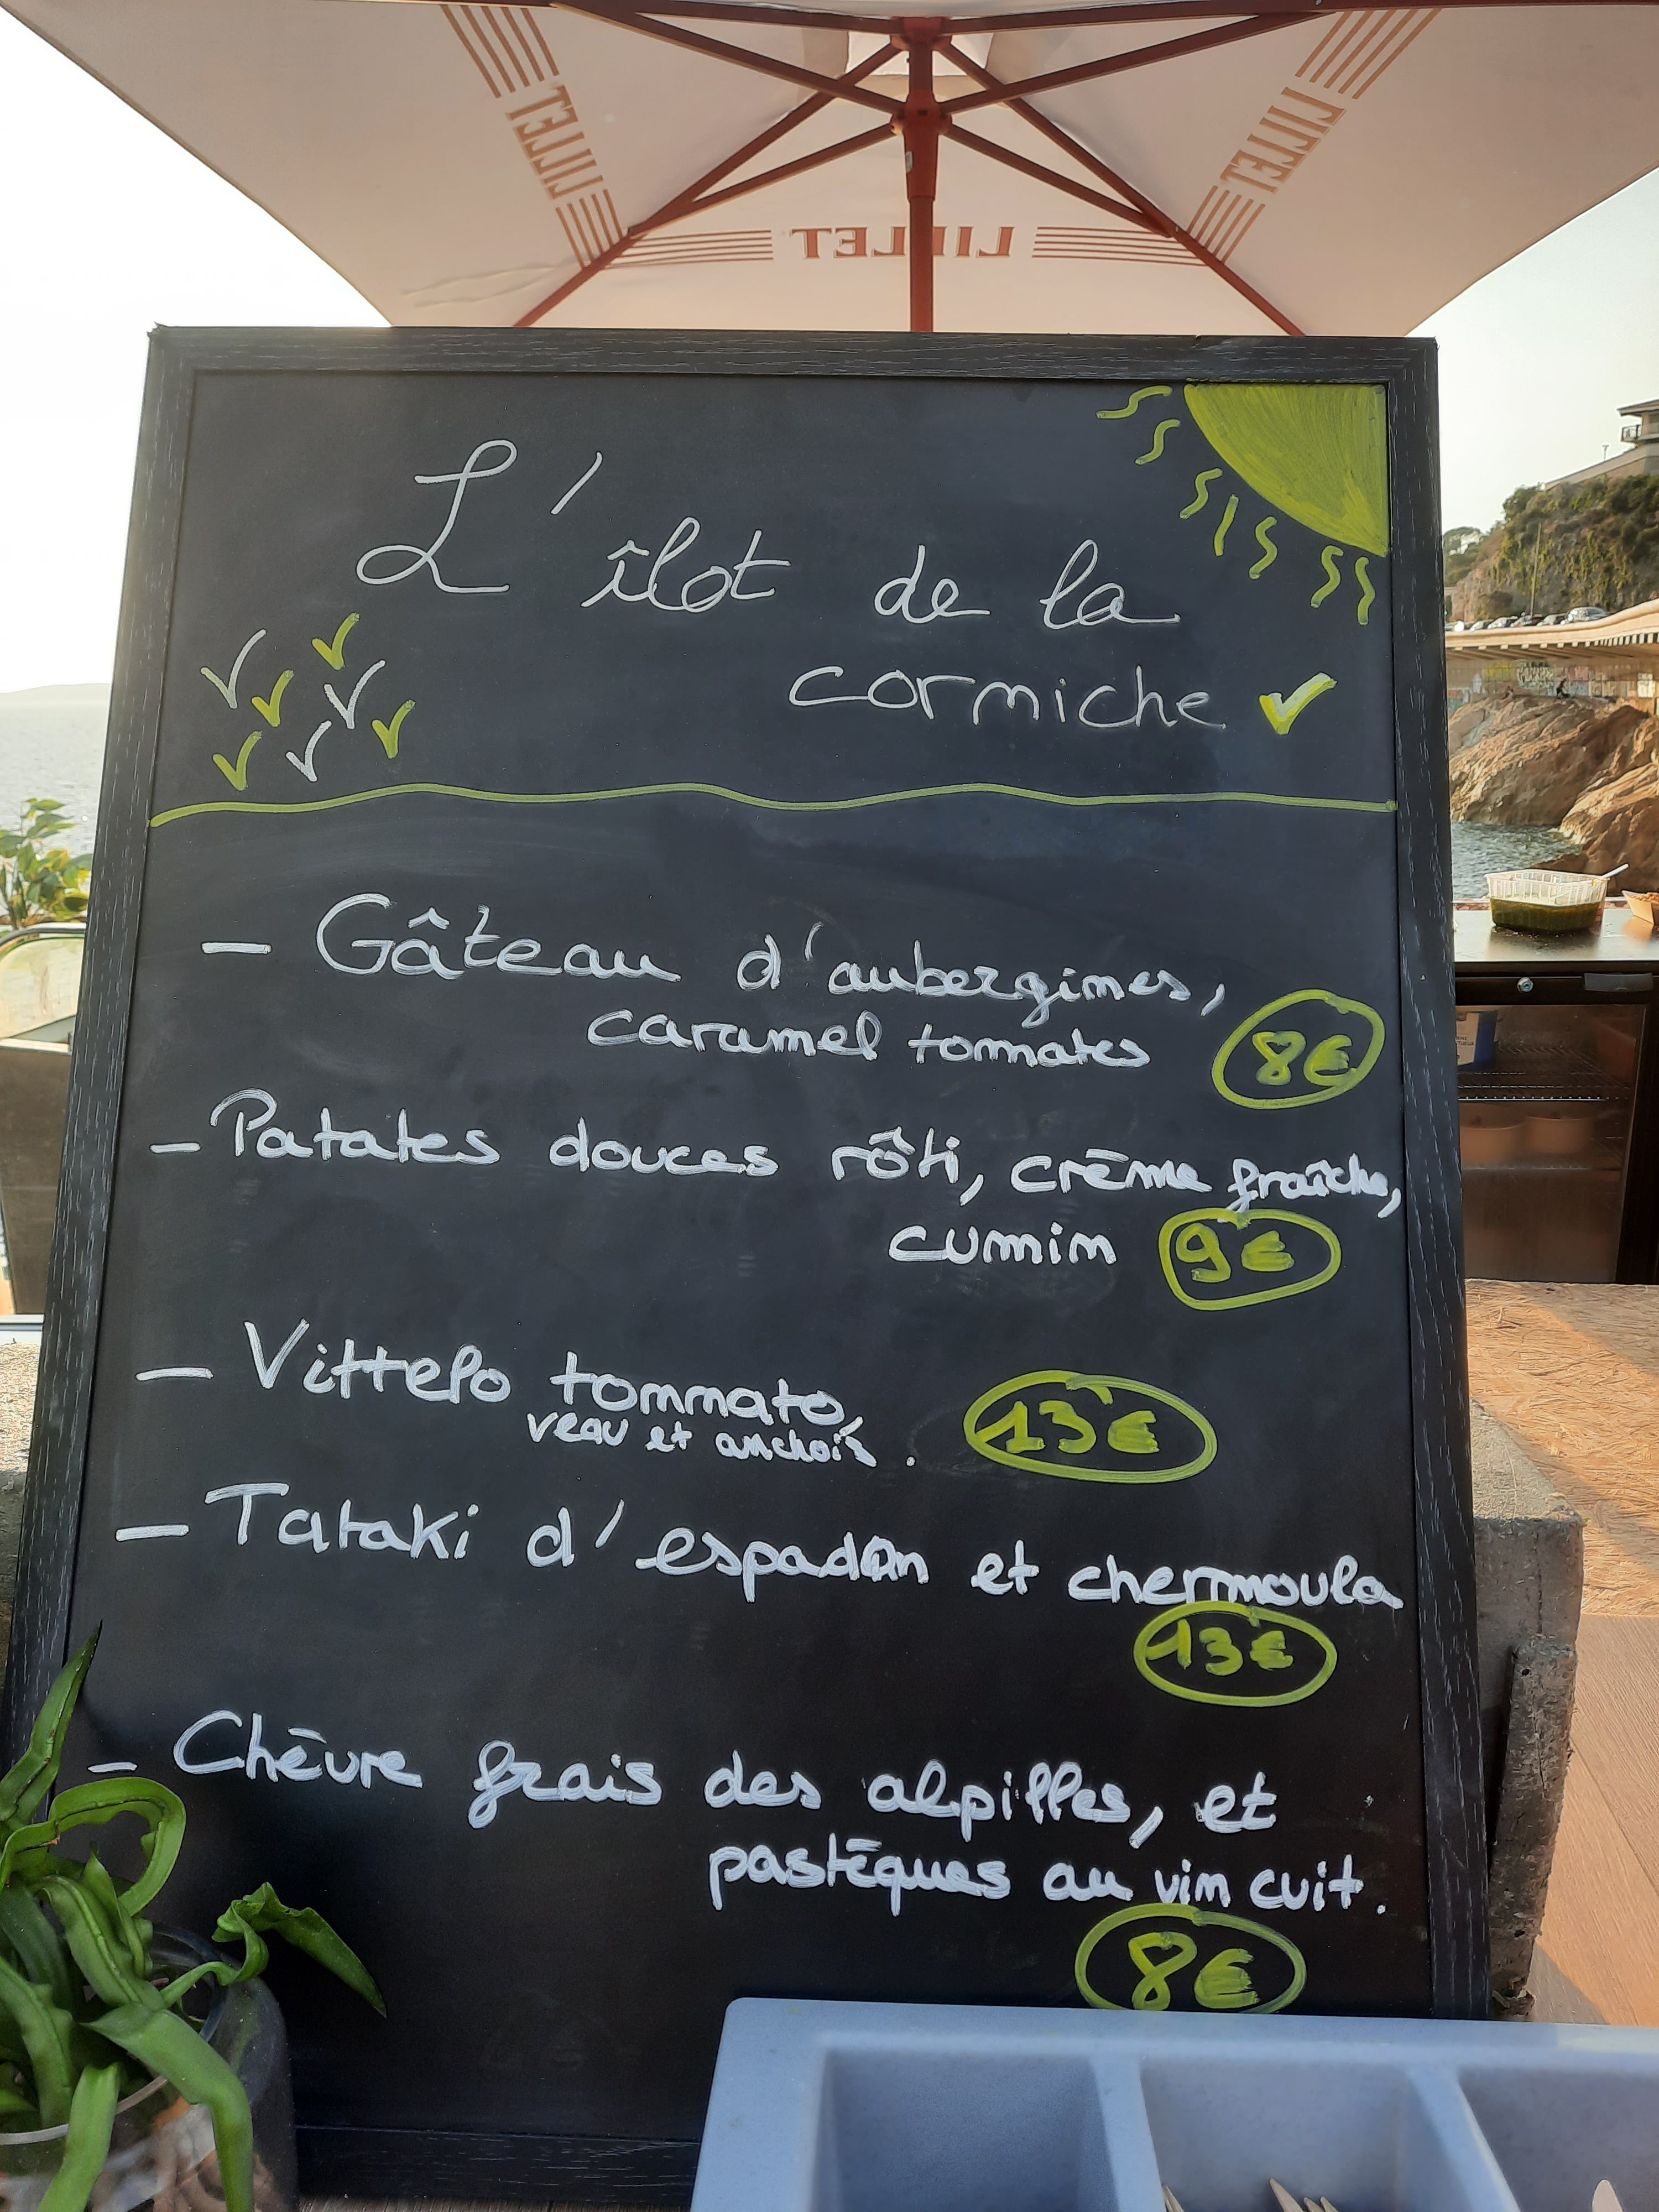 LILLET
LILLET
LILLET
L'îlot de la
corniche
- Gâteau d'aubergines,
caramel tomates
8€
- Patates douces rôti, crème fraîche,
cumin 9€
- Vittelo tonnato, 13€
veau et anchois.
- Tataki d'espadon et chermoula
13€
- Chèvre frais des alpilles, et
pastèques au vin cuit.
8€